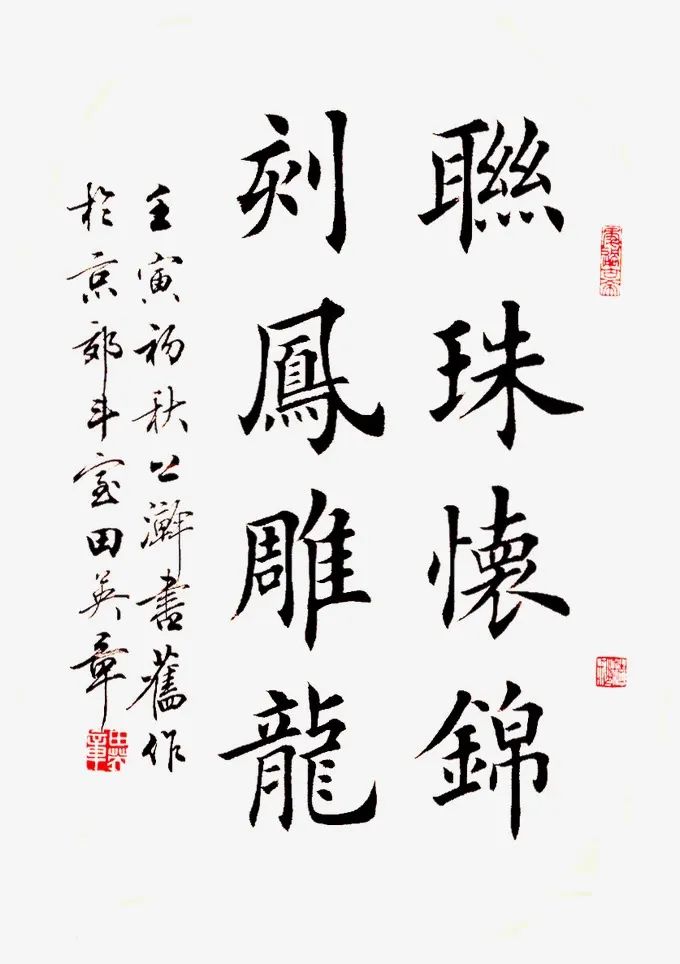 聯珠懷錦
刻鳳雕龍
壬寅初秋公瀚書舊作
於京郊斗室田英章